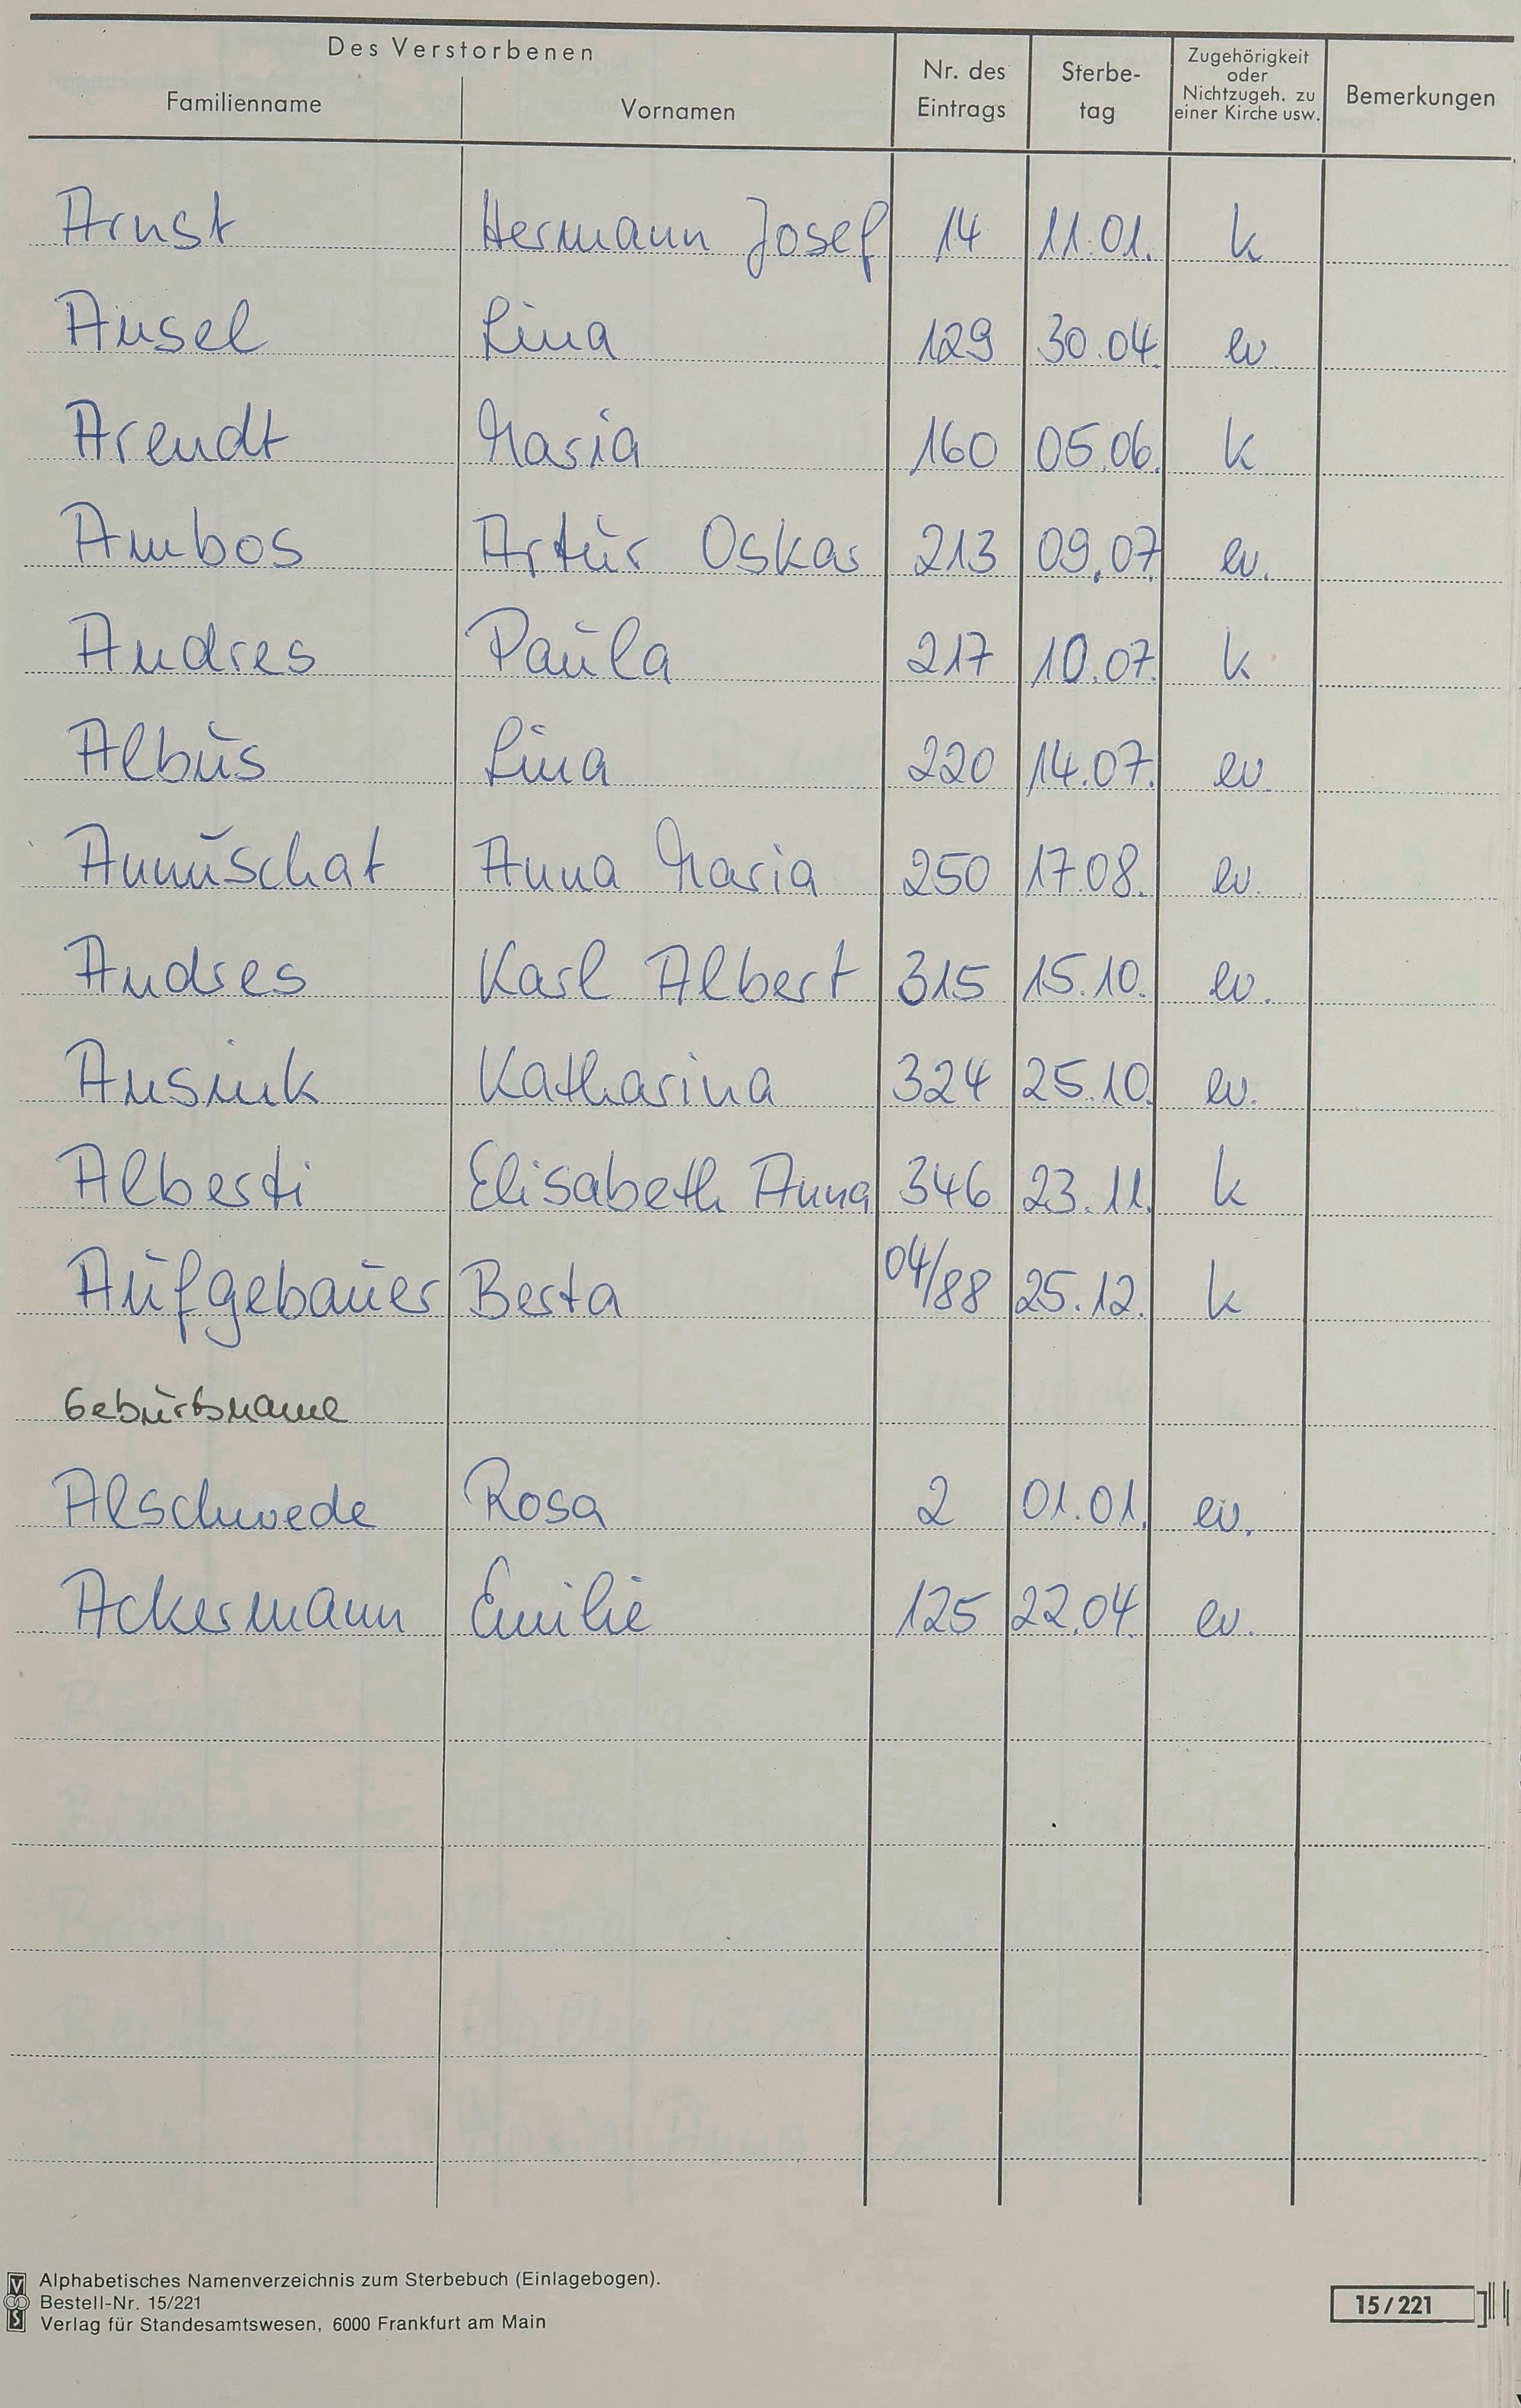 Des Verstorbenen
Familienname Vornamen Nr. des Eintrags Sterbe-tag Zugehörigkeit oder Nichtzugeh. zu einer Kirche usw. Bemerkungen
Arnst Hermann Josef 14 11.01. k
Ansel Lina 129 30.04. ev.
Arendt Maria 160 05.06. k
Ambos Artur Oskar 213 09.07. ev.
Andres Paula 217 10.07. k
Albus Lina 220 14.07. ev.
Annuschat Anna Maria 250 17.08. ev.
Andres Karl Albert 315 15.10. ev.
Ansink Katharina 324 25.10. ev.
Alberti Elisabeth Anna 346 23.11. k
Aufgebauer Berta 04/88 25.12. k
Geburtsname
Alschwede Rosa 2 01.01. ev.
Ackermann Emilie 125 22.04. ev.
Alphabetisches Namenverzeichnis zum Sterbebuch (Einlagebogen).
Bestell-Nr. 15/221
Verlag für Standesamtswesen, 6000 Frankfurt am Main
15/221